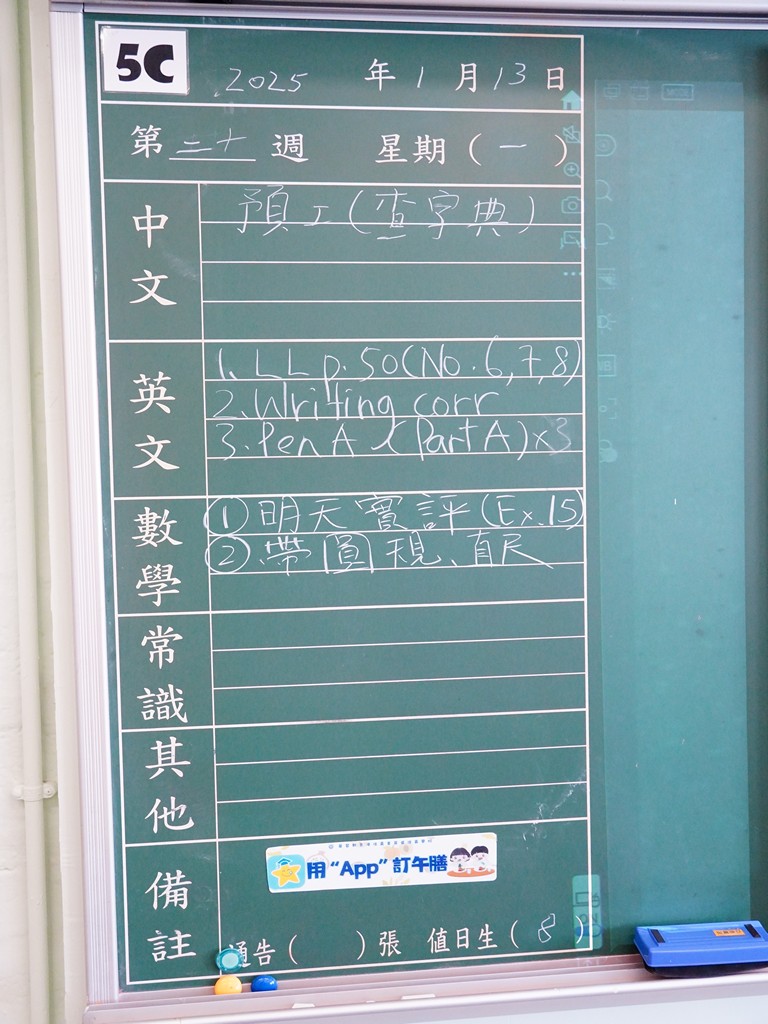 5C
2025 年 1 月 13 日
第 二十 週 星期 ( 一 )
中文
預工(查字典)
英文
1. LL p.50(No.6,7,8)
2. Writing corr
3. Pen A (Part A)x3
數學
① 明天實評(Ex.15)
② 帶圓規、直尺
常識
其他
備註
用“App”訂午膳
通告( )張 值日生( 8 )